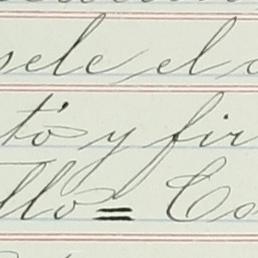 sele el
tó y fir
llo = Co